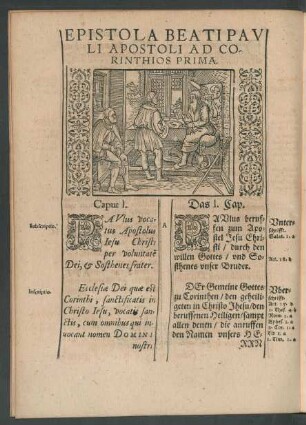 EPISTOLA BEATI PAV
LI APOSTOLI AD CO-
RINTHIOS PRIMA.
Caput I.
Subscriptio.
PAVlus voca-
tus Apostolus
Iesu Christi
per voluntatē
Dei, et Sosthenes frater.
Inscriptio.
Ecclesiæ Dei quæ est
Corinthi, sanctificatis in
Christo Iesu, vocatis san-
ctis, cum omnibus qui in-
uocant nomen DOMINI
nostri
A
Das I. Cap.
PAVlus beruf-
fen zum Apo-
stel Jesu Chri-
sti / durch den
willen Gottes / vnd So-
sthenes vnser Bruder.
DEr Gemeine Gottes
zu Corinthen / den geheili-
ten in Christo Jhesu / den
beruffenen Heiligen / sampt
allen denen / die anruffen
den Namen vnsers HE-
RRN
Vnter-
schrifft.
Vber-
schrifft.